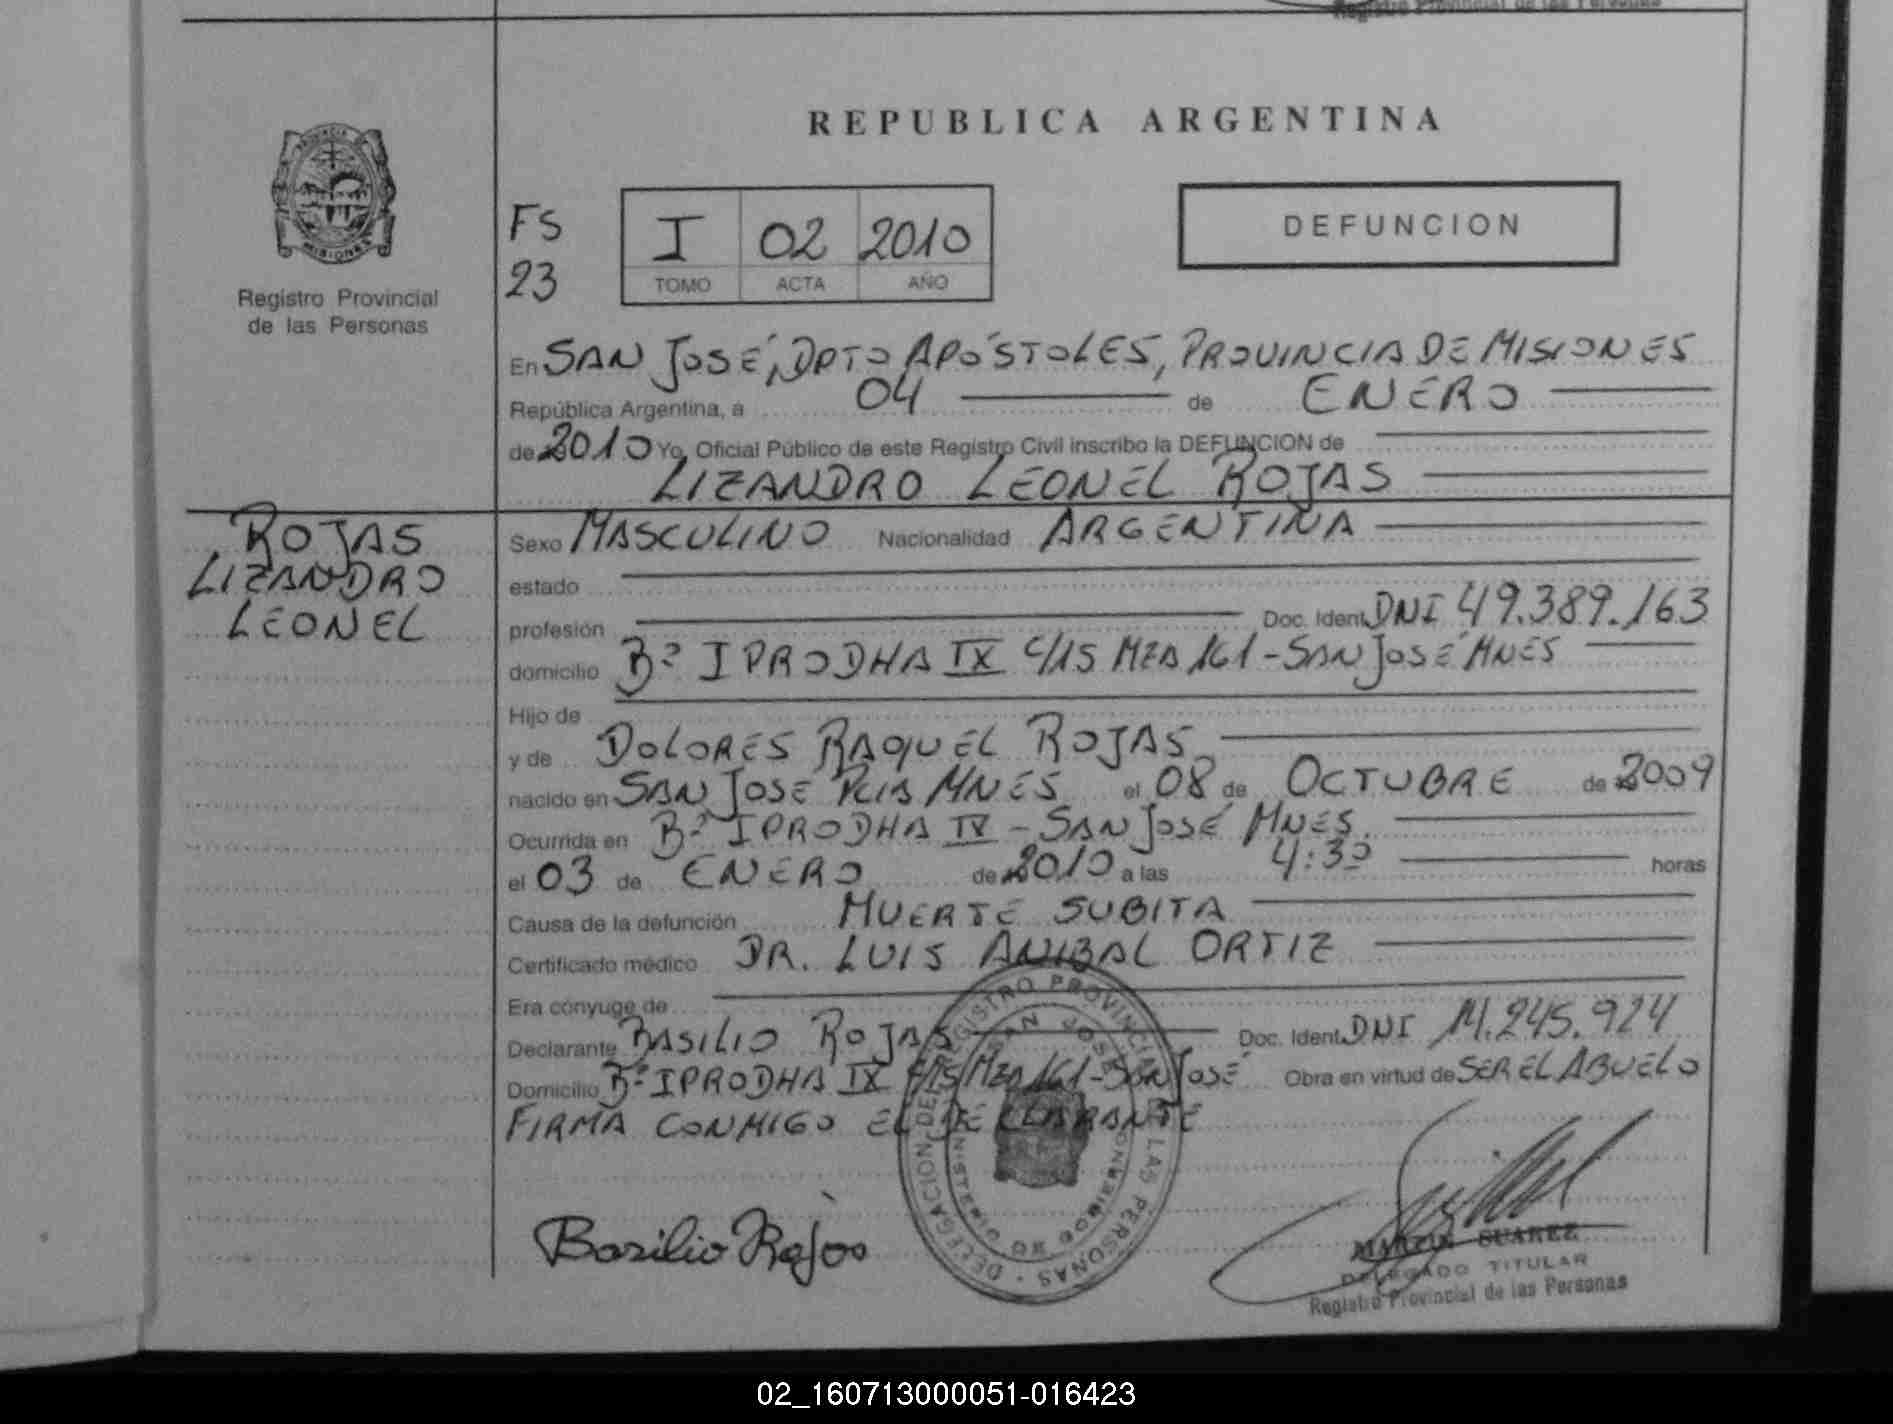 Registro Provincial de las Personas
REPUBLICA ARGENTINA
PROVINCIA
MISIONES
Registro Provincial
de las Personas
FS
23
I 02 2010
TOMO ACTA AÑO
DEFUNCION
En SAN JOSÉ, DPTO APÓSTOLES, PROVINCIA DE MISIONES
República Argentina, a 04 de ENERO
de 2010 Yo, Oficial Público de este Registro Civil inscribo la DEFUNCION de
LIZANDRO LEONEL ROJAS
ROJAS
LIZANDRO
LEONEL
Sexo MASCULINO Nacionalidad ARGENTINA
estado
profesión Doc. Ident. DNI 49.389.163
domicilio Bº IPRODHA IX C/15 MZA 161 - SAN JOSÉ MNES
Hijo de
y de DOLORES RAQUEL ROJAS
nacido en SAN JOSE PCIA MNES el 08 de OCTUBRE de 2009
Ocurrida en Bº IPRODHA IV - SAN JOSÉ MNES.
el 03 de ENERO de 2010 a las 4:30 horas
Causa de la defunción MUERTE SUBITA
Certificado médico DR. LUIS ANIBAL ORTIZ
Era cónyuge de
Declarante BASILIO ROJAS Doc. Ident. DNI 14.245.924
Domicilio Bº IPRODHA IX C/15 MZA 161 - SAN JOSÉ Obra en virtud de SER EL ABUELO
FIRMA CONMIGO EL DECLARANTE
DELEGACION DE REGISTRO PROVINCIAL DE LAS PERSONAS
SAN JOSE
Basilio Rojas
MARTIN SUAREZ
DELEGADO TITULAR
Registro Provincial de las Personas
02_160713000051-016423